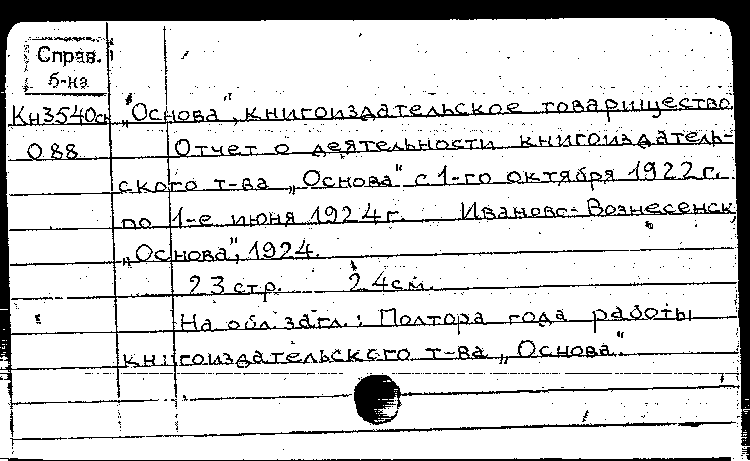 Справ.
б-на
Кн3540сн „Основа", книгоиздательское товарищество.
О88 Отчет о деятельности книгоиздатель-
ского т-ва „Основа" с 1-го октября 1922 г.
по 1-е июня 1924 г. Иваново-Вознесенск,
„Основа", 1924.
23 стр. 24 см.
На обл. загл.: Полтора года работы
книгоиздательского т-ва „Основа".